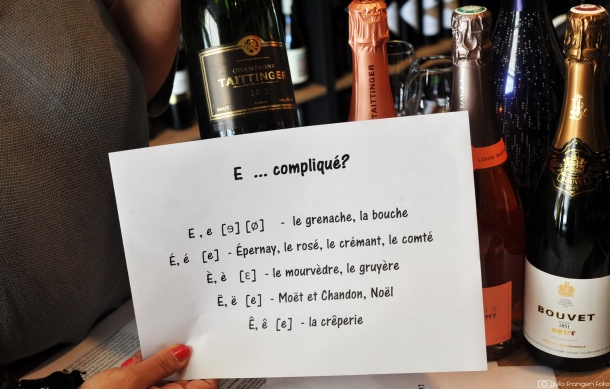 CHAMPAGNE
TAITTINGER
2012
BRUT
TAITTINGER
LOUIS
BOUVET
1851
BRUT
E ... compliqué?
E , e [ɘ] [ø] - le grenache, la bouche
É, é [e] - Épernay, le rosé, le crémant, le comté
È, è [ɛ] - le mourvèdre, le gruyère
Ë, ë [e] - Moët et Chandon, Noël
Ê, ê [e] - la crêperie